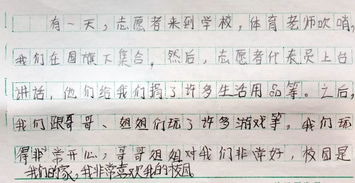 有一天，志愿者来到学校，体育老师吹哨，
我们在国旗下集合。然后，志愿者代表员上台
讲话，他们给我们捐了许多生活用品等。之后，
我们跟哥哥、姐姐们玩了许多游戏等，我们玩
得非常开心，哥哥姐姐对我们非常好，校园是
我们的家，我非常喜欢我的校园